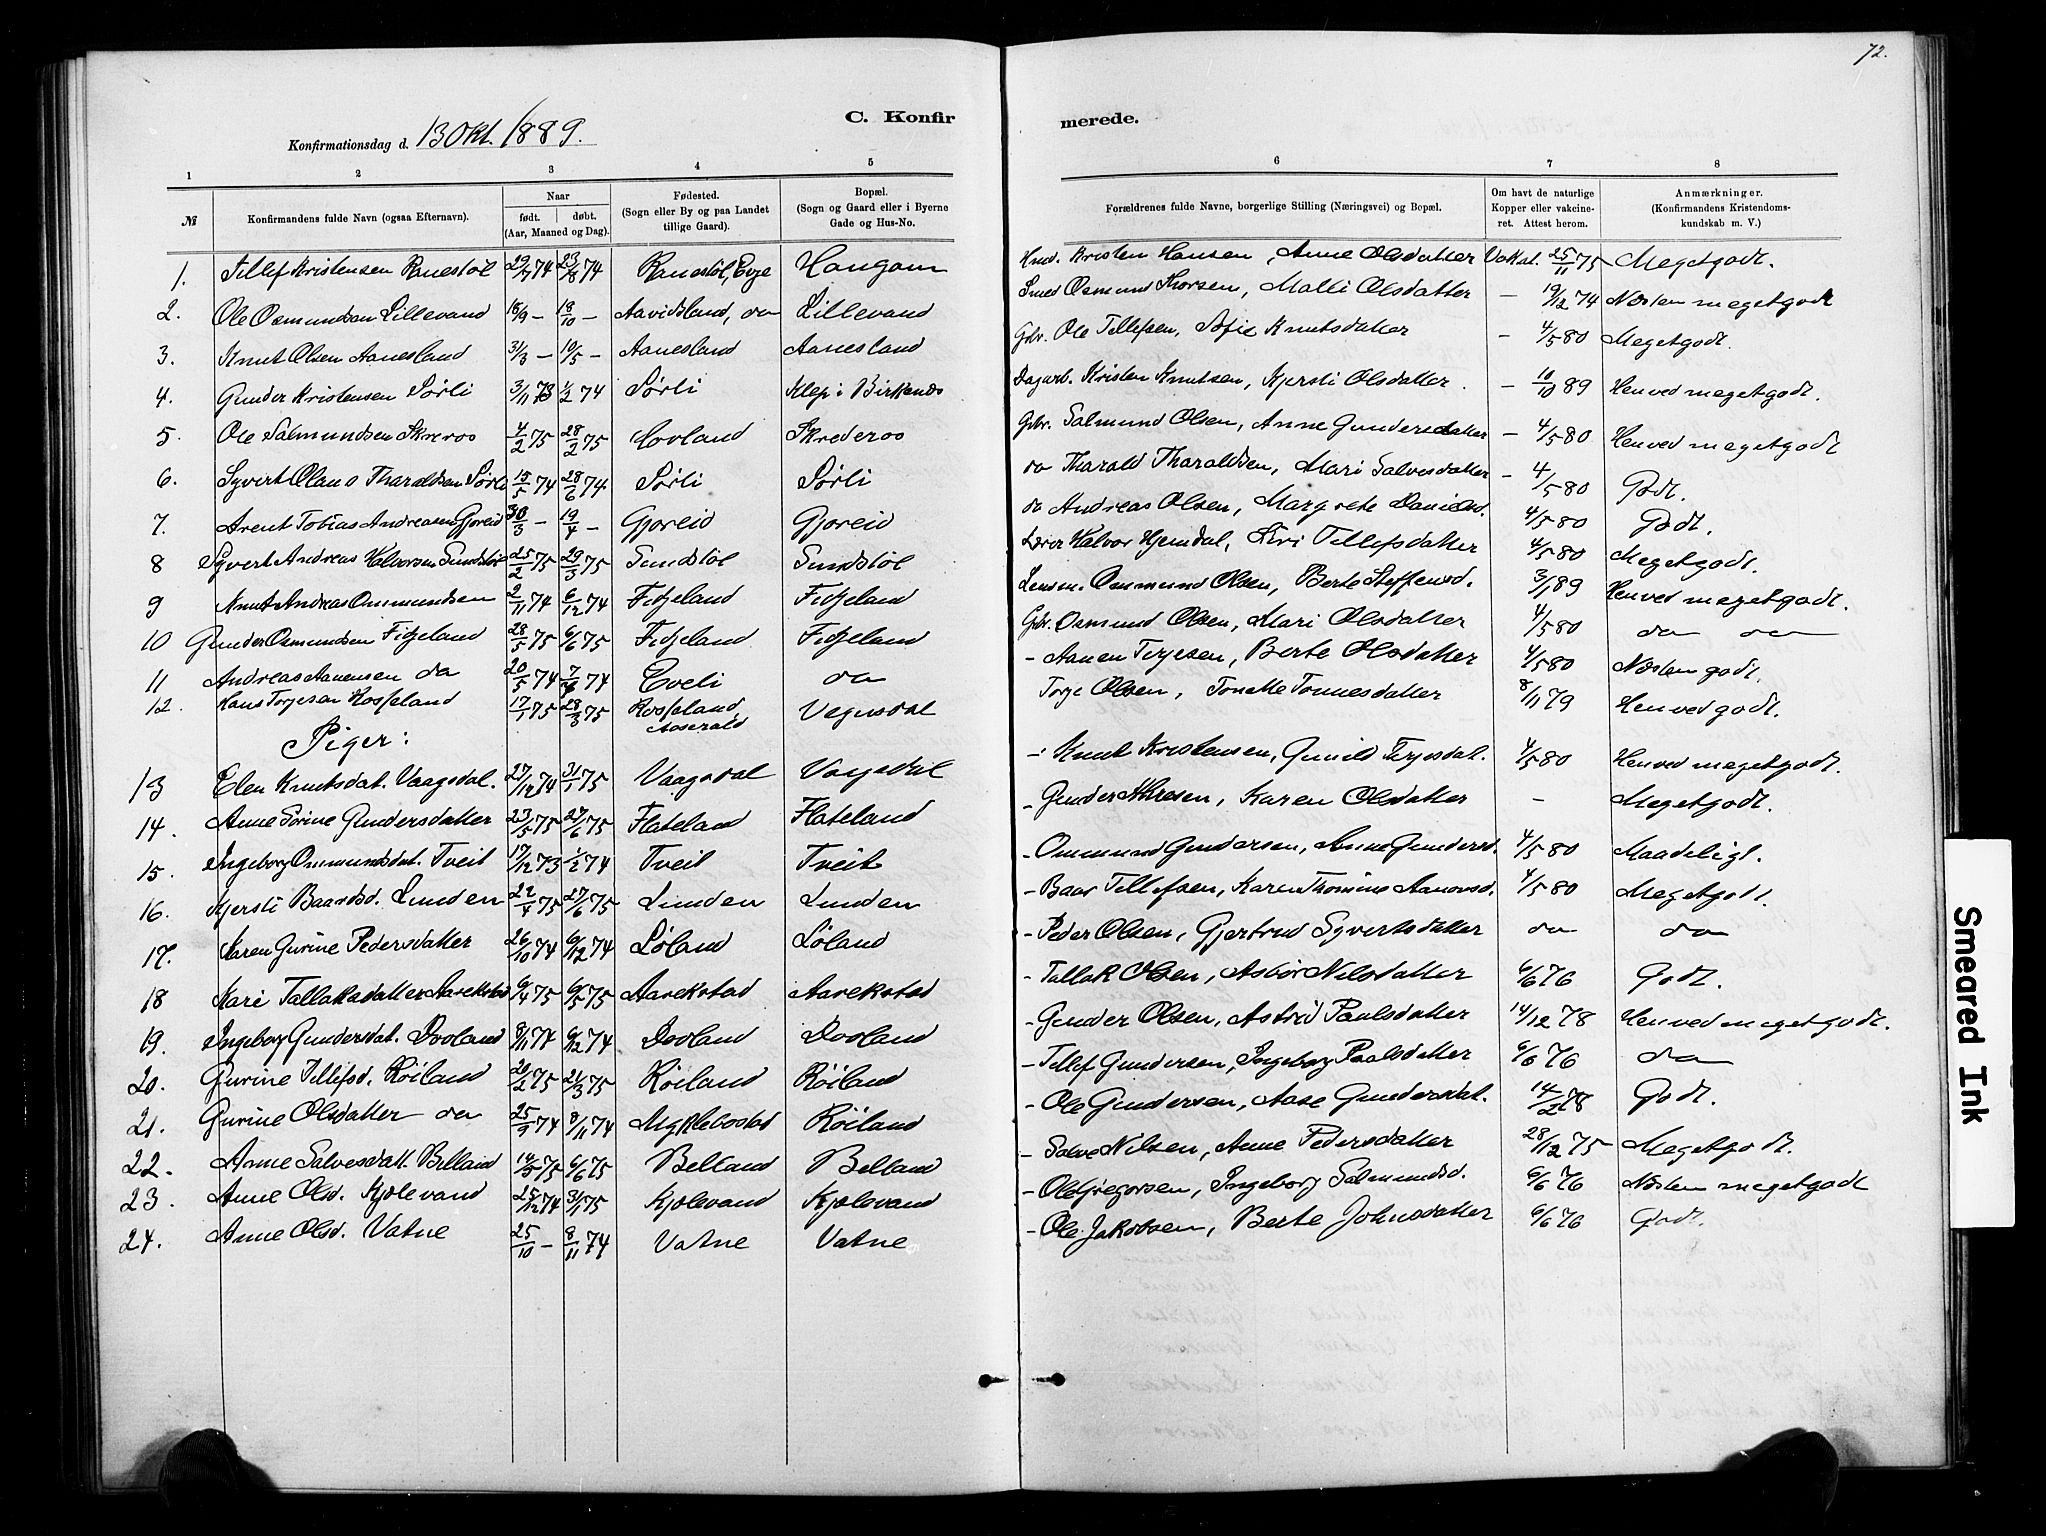 72.
C. Konfirmerede.
Konfirmationsdag d. 13 Okt. 1889.
1 2 3 4 5 6 7 8
№ Konfirmandens fulde Navn (ogsaa Efternavn). Naar født. døbt. (Aar, Maaned og Dag). Fødested. (Sogn eller By og paa Landet tillige Gaard). Bopæl. (Sogn og Gaard eller i Byerne Gade og Hus-No. Forældrenes fulde Navne, borgerlige Stilling (Næringsvei) og Bopæl. Om havt de naturlige Kopper eller vakcineret. Attest herom. Anmærkninger. (Konfirmandens Kristendomskundskab m. V.)
1. Tellef Kristensen Ranestøl 29/7 74 23/8 74 Ranestøl, Evje Haugann Hmd. Kristen Hansen, Anne Olsdatter Vakat. 25/11 75 Megetgodt.
2. Ole Osmundsen Lillevand 18/9 — 18/10 — Aavidsland, do Lillevand Smed Osmund Thorsen, Malli Olsdatter — 19/12 74 Næsten megetgodt
3. Knut Olsen Aanesland 31/3 — 10/5 — Aanesland Aanesland Gbr. Ole Tellefsen, Sofie Knutsdatter — 4/5 80 Megetgodt.
4. Gunder Kristensen Sørli 3/11 73 1/2 74 Sørli Klep i Birkenes Dagarb. Kristen Knutsen, Kjersti Olsdatter. — 10/10 89 Henved megetgodt.
5. Ole Salmundsen Skreros 4/2 75 28/2 75 Hovland Skrederos Gbr. Salmund Olsen, Anne Gundersdatter — 4/5 80 Henved megetgodt
6. Syvert Olaus Tharaldsen Sørli 15/5 74 28/6 74 Sørli Sørli do Tharald Tharaldsen, Mari Salvesdatter — 4/5 80 Godt.
7. Arent Tobias Andreasen Gjoreid 30/3 — 19/4 — Gjoreid Gjoreid do Andreas Olsen, Margrete Danielsd. 4/5 80 Godt.
8 Syvert Andreas Halvorsen Sundstøl 25/2 75 29/3 75 Sundstøl Sundstøl Lærer Halvor Hjemdal, Siri Tellefsdatter 4/5 80 Megetgodt.
9 Knut Andreas Ommundsen 2/11 74 6/12 74 Fidjeland Fidjeland Lensm. Ommund Olsen, Berte Steffensd. 3/1 89 Henved megetgodt.
10 Gunder Osmundsen Fidjeland 28/5 75 6/6 75 Fidjeland Fidjeland Gbr. Osmund Olsen, Mari Olsdatter 4/5 80 do do
11 Andreas Aanensen do 20/5 74 74 Eveli do - Aanen Terjesen, Berte Olsdatter 4/5 80 Næsten godt.
12. Hans Torjesen Kosseland 17/1 75 28/3 75 Kosseland Aaserald Vegusdal Torje Olsen, Tonette Tonnesdatter 8/11 79 Henved godt.
Piger:
13 Elen Knutsdat. Vaagsdal. 27/12 74 31/1 75 Vaagsdal Vaagsdal - Knut Kristensen, Gunild Terjesdat. 4/5 80 Henved megetgodt.
14. Anne Sørine Gundersdatter 23/5 75 27/6 75 Flateland Flateland - Gunder , Karen Olsdatter - Megetgodt.
15. Ingeborg Ommundsdat. Tveit 17/12 73 1/2 74 Tveit Tveit - Ommund Gundersen, Anne Gundersd. 4/5 80 Maadeligt.
16. Kjersti Baardsd. Lunden 22/4 75 27/6 75 Lunden Lunden - Baar Tellefsen, Karen Thomine Aanonsd. 4/5 80 Megetgodt.
17. Karen Gurine Pedersdatter 26/10 74 6/12 74 Løland Løland - Peder Olsen, Gjertrud Syvertsdatter do do
18 Kari Tallaksdatter Aarekstad 6/4 75 6/5 75 Aarekstad Aarekstad - Tallak Olsen, Asbør Nilsdatter 6/6 76 Godt.
19. Ingeborg Gundersdat. Dovland 8/11 74 6/12 74 Dovland Dovland - Gunder Olsen, Astrid Paalsdatter 14/12 78 Henved megetgodt.
20. Gurine Tellefsd. Røiland 20/2 75 21/3 75 Røiland Røiland - Tellef Gundersen, Ingeborg Paalsdatter 6/6 76 do
21. Gurine Olsdatter do 25/9 74 8/11 74 Myklebostad Røiland - Ole Gundersen, Aase Gundersdat. 14/2 78 Godt.
22. Anne Salvesdatt. Belland 14/5 75 6/6 75 Belland Belland - Salve Nilsen, Anne Pedersdatter 28/12 75 Megetgodt.
23. Anne Olsd. Kjølevand 25/12 74 31/1 75 Kjølevand Kjølevand - Ole Gregorsen, Ingeborg Salmundsd. 6/6 76 Næsten megetgodt
24. Anne Olsd. Vatne 25/10 — 8/11 74 Vatne Vatne - Ole Jakobsen, Berte Johnsdatter 6/6 76 Godt.
Smeared Ink